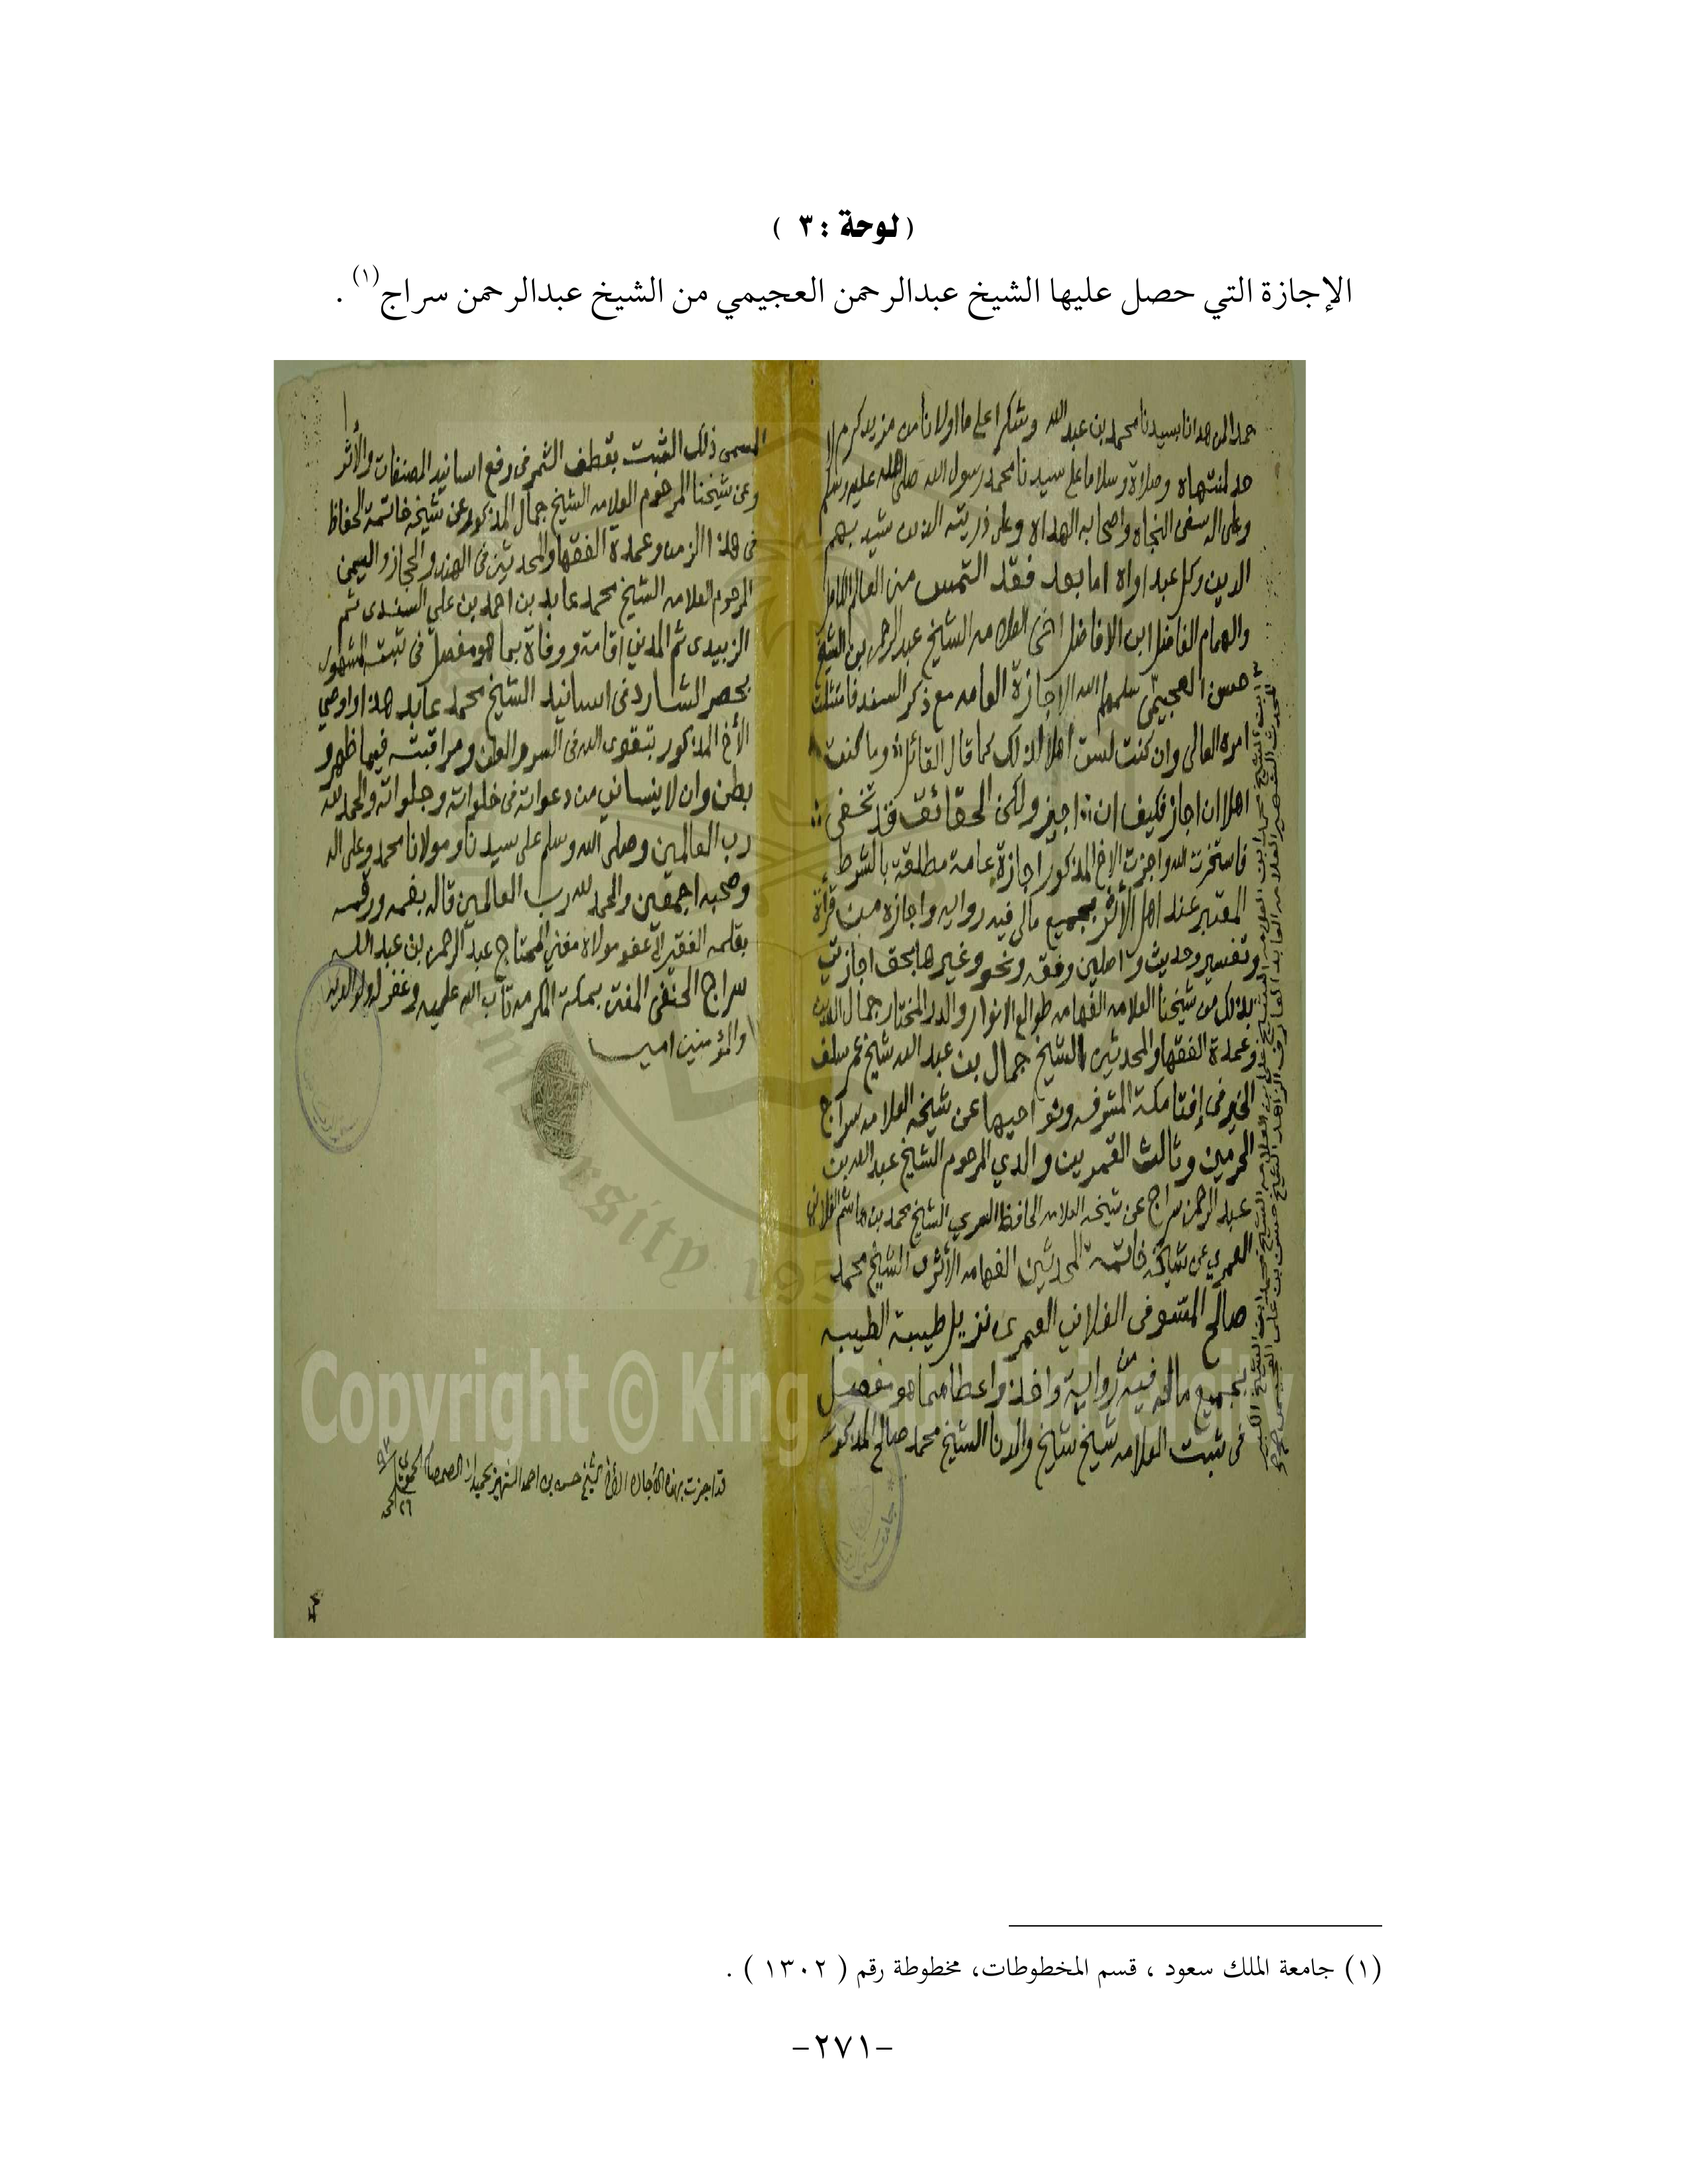 ( لوحة : ٣ )
الإجازة التي حصل عليها الشيخ عبدالرحمن العجيمي من الشيخ عبدالرحمن سراج(١) .
حمدا لمن هدانا بسيدنا محمد بن عبد الله وشكرا على ما اولانا من مزيد كرم لا
حد لمنتهاه وصلاة وسلاما على سيدنا محمد رسول الله صلى الله عليه وسلم
وعلى اله سفن النجاه واصحابه الهداه وعلى ذريته الذين شيد بهم
الدين وكل عبد اواه اما بعد فقد التمس مني العالم الكامل
والهمام الفاضل ابن الافاضل اخى العلامه الشيخ عبد الرحمن بن الشيخ
حسن العجيمى سلمهما الله الاجازة العامه مع ذكر السند فامتثلت
امره العالى وان كنت لست اهلا لذلك كما قال القائل وما كنت
اهلا ان اجاز فكيف ان اجيز ولكن الحقائق قد تخفى
فاستخرت الله واجزت الاخ المذكور اجازة عامة مطلقة بالشرط
المعتبر عند اهل الأثر بجميع مالى فيه روايه واجازه من قرأة
وتفسير وحديث واصلين وفقه ونحو وغيرها بحق اجازتي
بذلك من شيخنا العلامه الفهامه طوالع الانوار والدر المختار جمال الدين
وعمدة الفقها والمحدثين الشيخ جمال بن عبد الله شيخ عمر سلف
الخير فى إفتا مكة المشرفه ونواحيها عن شيخه العلامه سراج
الحرمين وثالث القمرين والدي المرحوم الشيخ عبد الله بن
عبد الرحمن سراج عن شيخه العلامه الحافظ العمري الشيخ محمد بن هاشم الفلانى
العمري عن شيخه خاتمة المحدثين الفهامه الأثرى الشيخ محمد
صالح المسوفى الفلاني العمرى نزيل طيبة الطيبه
بجميع ماله فيه من رواية واخذ واعطا مما هو مفصل
فى ثبت العلامه شيخ شيخ والدنا الشيخ محمد صالح المذكور
المسمى ذلك الثبت بقطف الثمر فى رفع اسانيد المصنفات والأثر
وعن شيخنا المرحوم العلامه الشيخ جمال المذكور عن شيخه خاتمة الحفاظ
فى هذا الزمن وعمدة الفقها والمحدثين فى الهند والحجاز واليمن
المرحوم العلامه الشيخ محمد عابد بن احمد بن علي السندى ثم
الزبيدى ثم المدني اقامة ووفاة بما هو مفصل فى ثبته المشهور
بحصر الشارد فى اسانيد الشيخ محمد عابد هذا واوصي
الأخ المذكور بتقوى الله فى السر والعلن ومراقبته فيما ظهر و
بطن وان لا ينساني من دعواته فى خلواته وجلواته والحمد لله
رب العالمين وصلى الله وسلم على سيدنا ومولانا محمد وعلى اله
وصحبه اجمعين والحمد لله رب العالمين قاله بفمه ورقمه
بقلمه الفقير الى عفو مولاه مغني المحتاج عبد الرحمن بن عبد الله
سراج الحنفى المفتى بمكة المكرمه تاب الله عليه وغفر له ولوالديه
والمؤمنين امين
قد اجزت بهذه الأجازه الأخ الشيخ حسن بن احمد
Copyright © King Saud University
(١) جامعة الملك سعود ، قسم المخطوطات، مخطوطة رقم ( ١٣٠٢ ) .
-٢٧١-